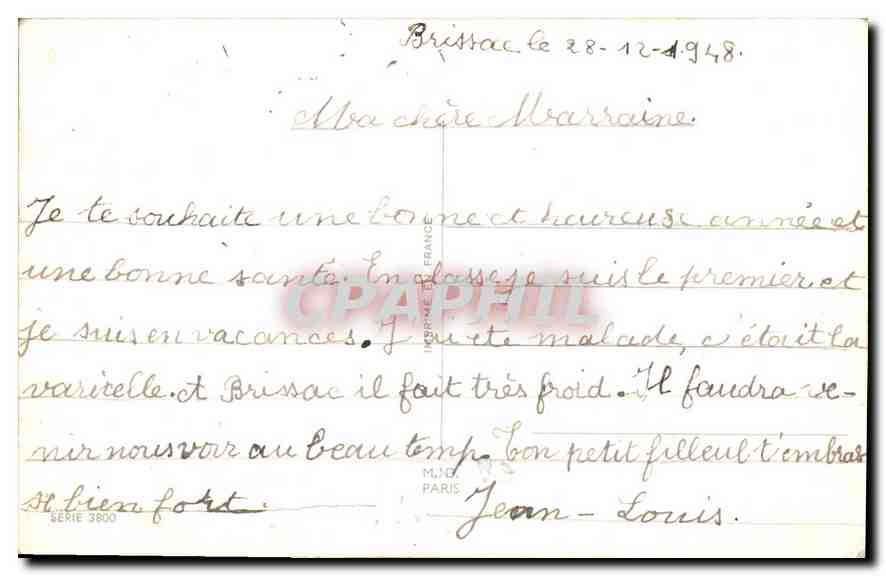 Brissac le 28-12-1948.
Ma chère Marraine.
Je te souhaite une bonne et heureuse année et
une bonne santé. En classe je suis le premier et
je suis en vacances. J'ai été malade, c'était la
varicelle. A Brissac il fait très froid. Il faudra ve-
nir nous voir au beau temp. Ton petit filleul t'embras
se bien fort.
Jean-Louis.
IMPRIMÉ EN FRANCE
M.D.
PARIS
SERIE 3800
CPAPHIL